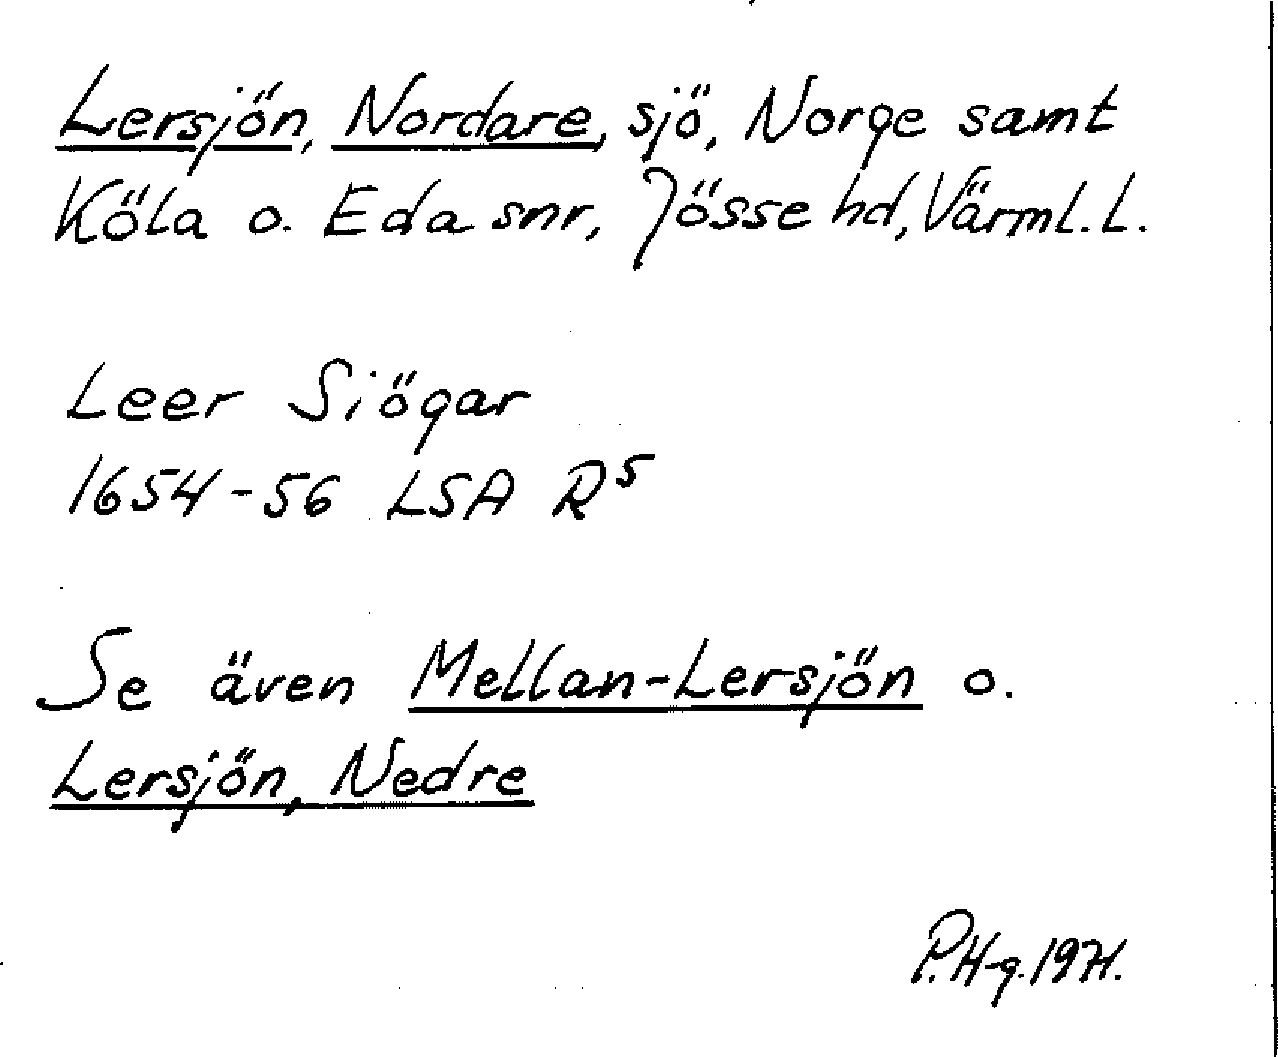 Lersjön, Nordare, sjö, Norge samt
Köla o. Eda snr, Jösse hd, Värml. l.
Leer Siögar
1654-56 LSA R5
Se även Mellan-Lersjön o.
Lersjön, Nedre
P.H-g. 1971.